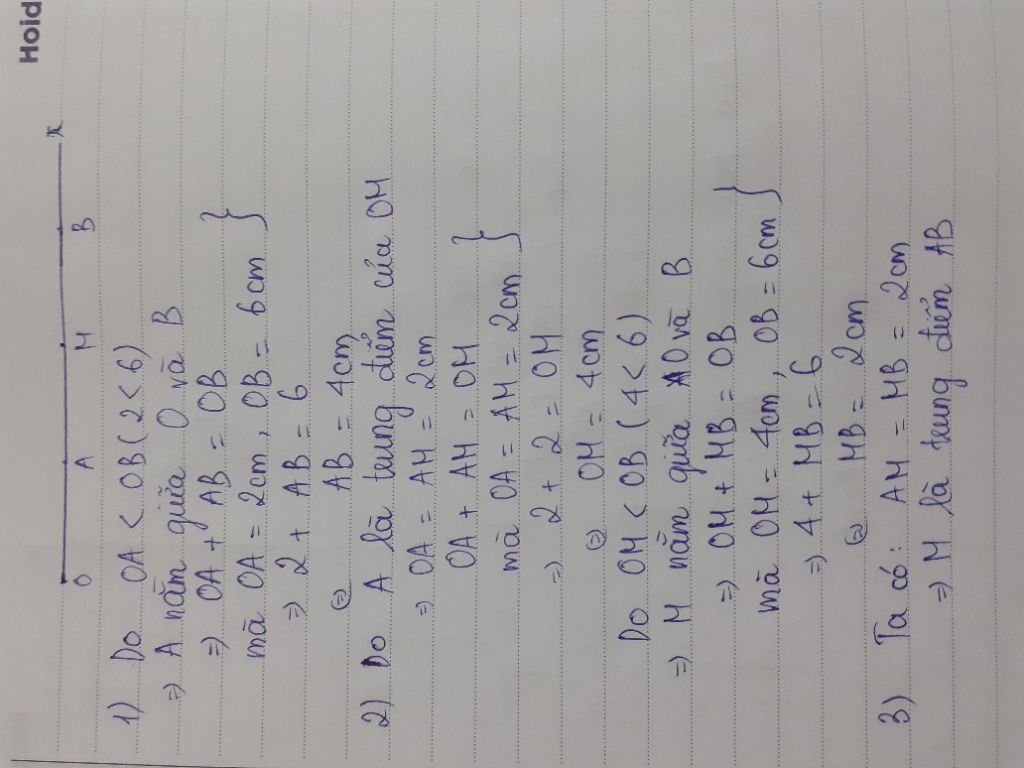 Hoid
x
O A M B
1) Do OA < OB (2 < 6)
⇒ A nằm giữa O và B
⇒ OA + AB = OB
mà OA = 2cm, OB = 6cm }
⇒ 2 + AB = 6
⇔ AB = 4cm
2) Do A là trung điểm của OM
⇒ OA = AM = 2cm
OA + AM = OM
mà OA = AM = 2cm }
⇒ 2 + 2 = OM
⇔ OM = 4cm
Do OM < OB (4 < 6)
⇒ M nằm giữa O và B
⇒ OM + MB = OB
mà OM = 4cm, OB = 6cm }
⇒ 4 + MB = 6
⇔ MB = 2cm
3) Ta có: AM = MB = 2cm
⇒ M là trung điểm AB